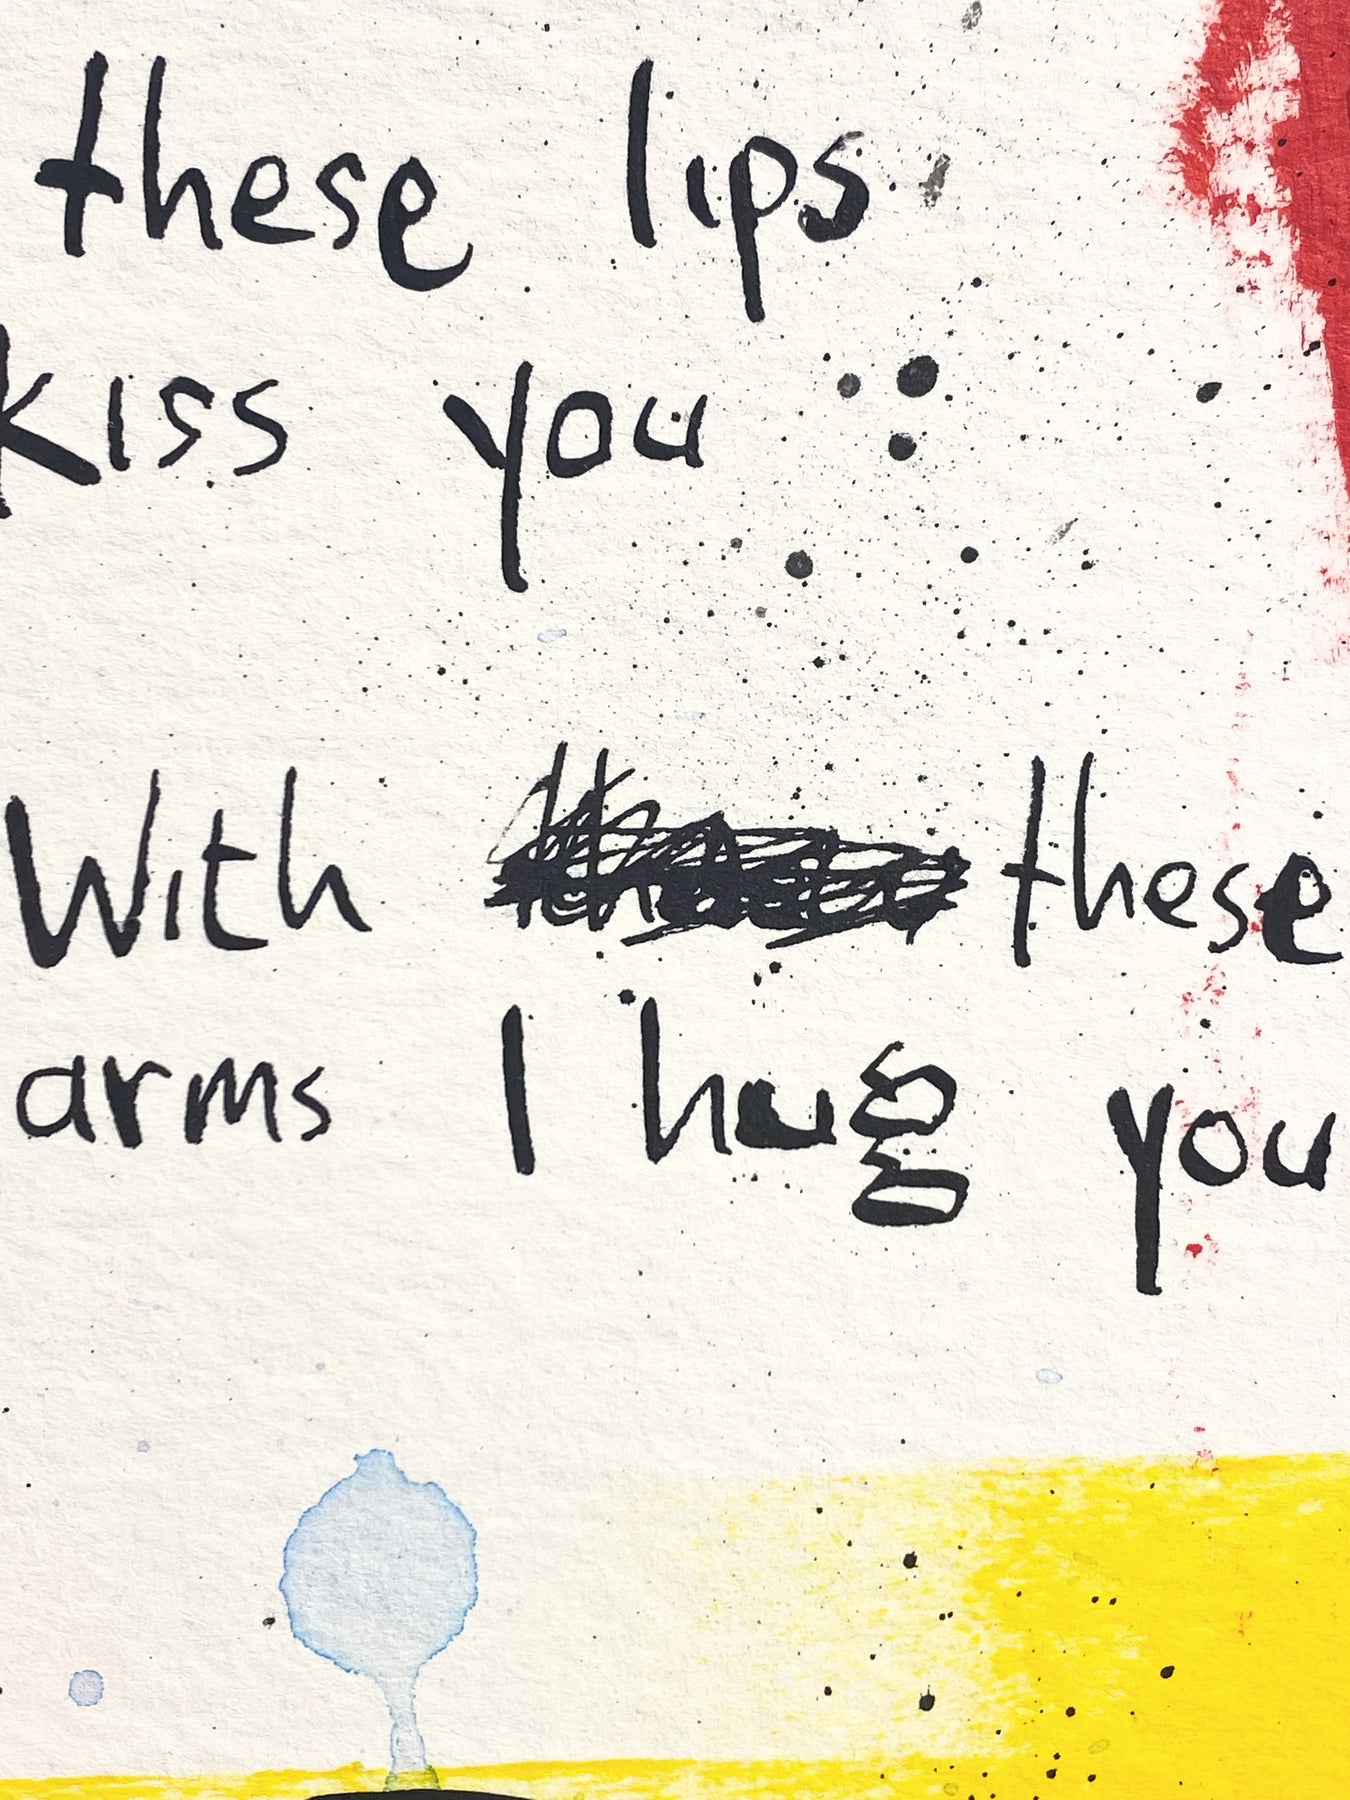 these lips
kiss you
With these
arms I hug you